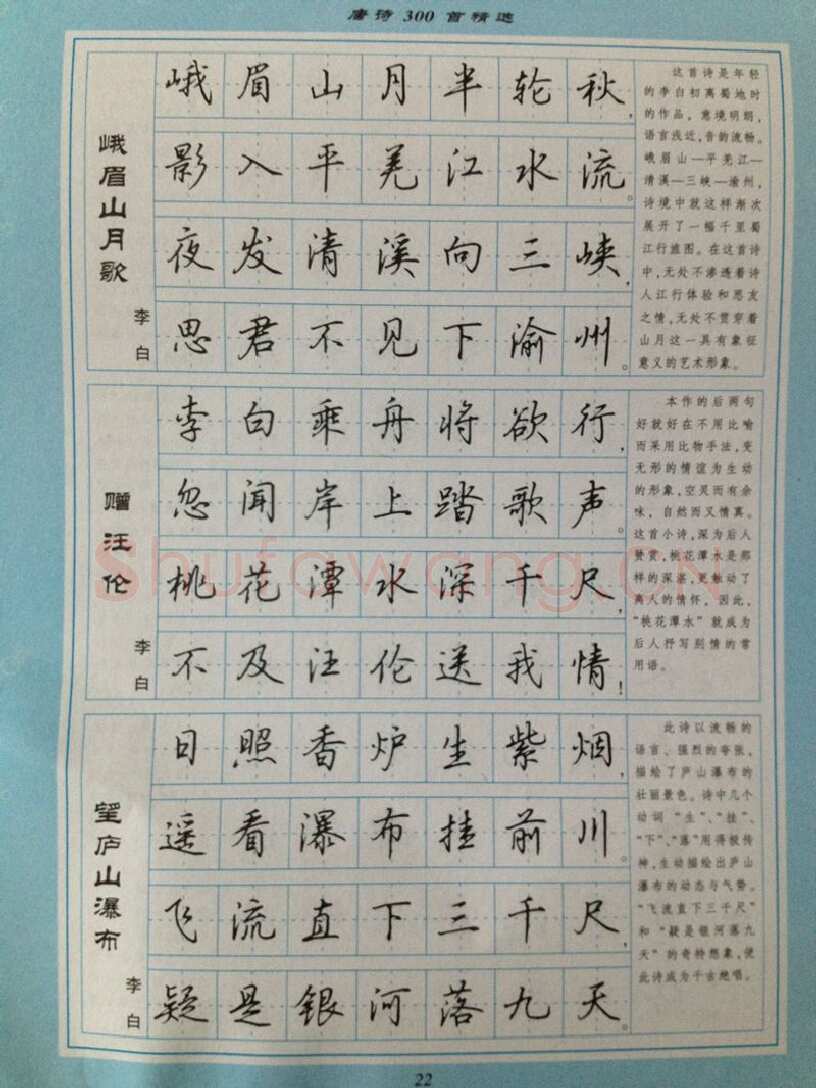 唐诗 300 首精选
峨眉山月歌
李白
峨眉山月半轮秋，
影入平羌江水流。
夜发清溪向三峡，
思君不见下渝州。
这首诗是年轻
的李白初离蜀地时
的作品，意境明朗，
语言浅近，音韵流畅。
峨眉山—平羌江—
清溪—三峡—渝州，
诗境中就这样渐次
展开了一幅千里蜀
江行旅图。在这首诗
中，无处不渗透着诗
人江行体验和思友
之情，无处不贯穿着
山月这一具有象征
意义的艺术形象。
赠汪伦
李白
李白乘舟将欲行，
忽闻岸上踏歌声。
桃花潭水深千尺，
不及汪伦送我情！
本作的后两句
好就好在不用比喻
而采用比物手法，变
无形的情谊为生动
的形象，空灵而有余
味，自然而又情真。
这首小诗，深为后人
赞赏，桃花潭水是那
样的深湛，更触动了
离人的情怀，因此，
“桃花潭水”就成为
后人抒写别情的常
用语。
望庐山瀑布
李白
日照香炉生紫烟，
遥看瀑布挂前川。
飞流直下三千尺，
疑是银河落九天。
此诗以流畅的
语言、强烈的夸张，
描绘了庐山瀑布的
壮丽景色。诗中几个
动词“生”、“挂”、
“下”、“落”用得极传
神，生动描绘出庐山
瀑布的动态与气势。
“飞流直下三千尺”
和“疑是银河落九
天”的奇特想象，使
此诗成为千古绝唱。
22
shufawang.cn